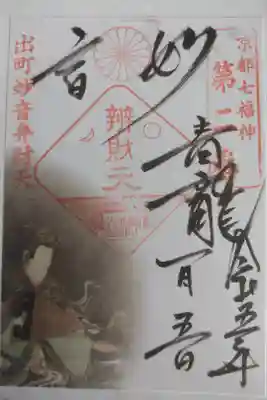 京都七福神
第一番
妙音
青龍
辨財天
五年
一月五日
出町妙音弁財天